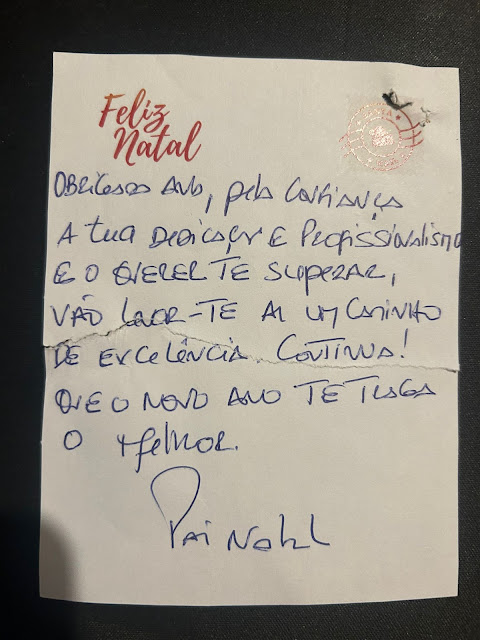 Feliz
Natal
OBRIGADO ANA, pela Confiança
A tua DEDICAÇÃO E Profissionalismo
E O QUERER TE SUPERAR,
VÃO LEVAR-TE A UM CAMINHO
DE EXCELÊNCIA. CONTINUA!
QUE O NOVO ANO TE TRAGA
O Melhor.
Pai Natal